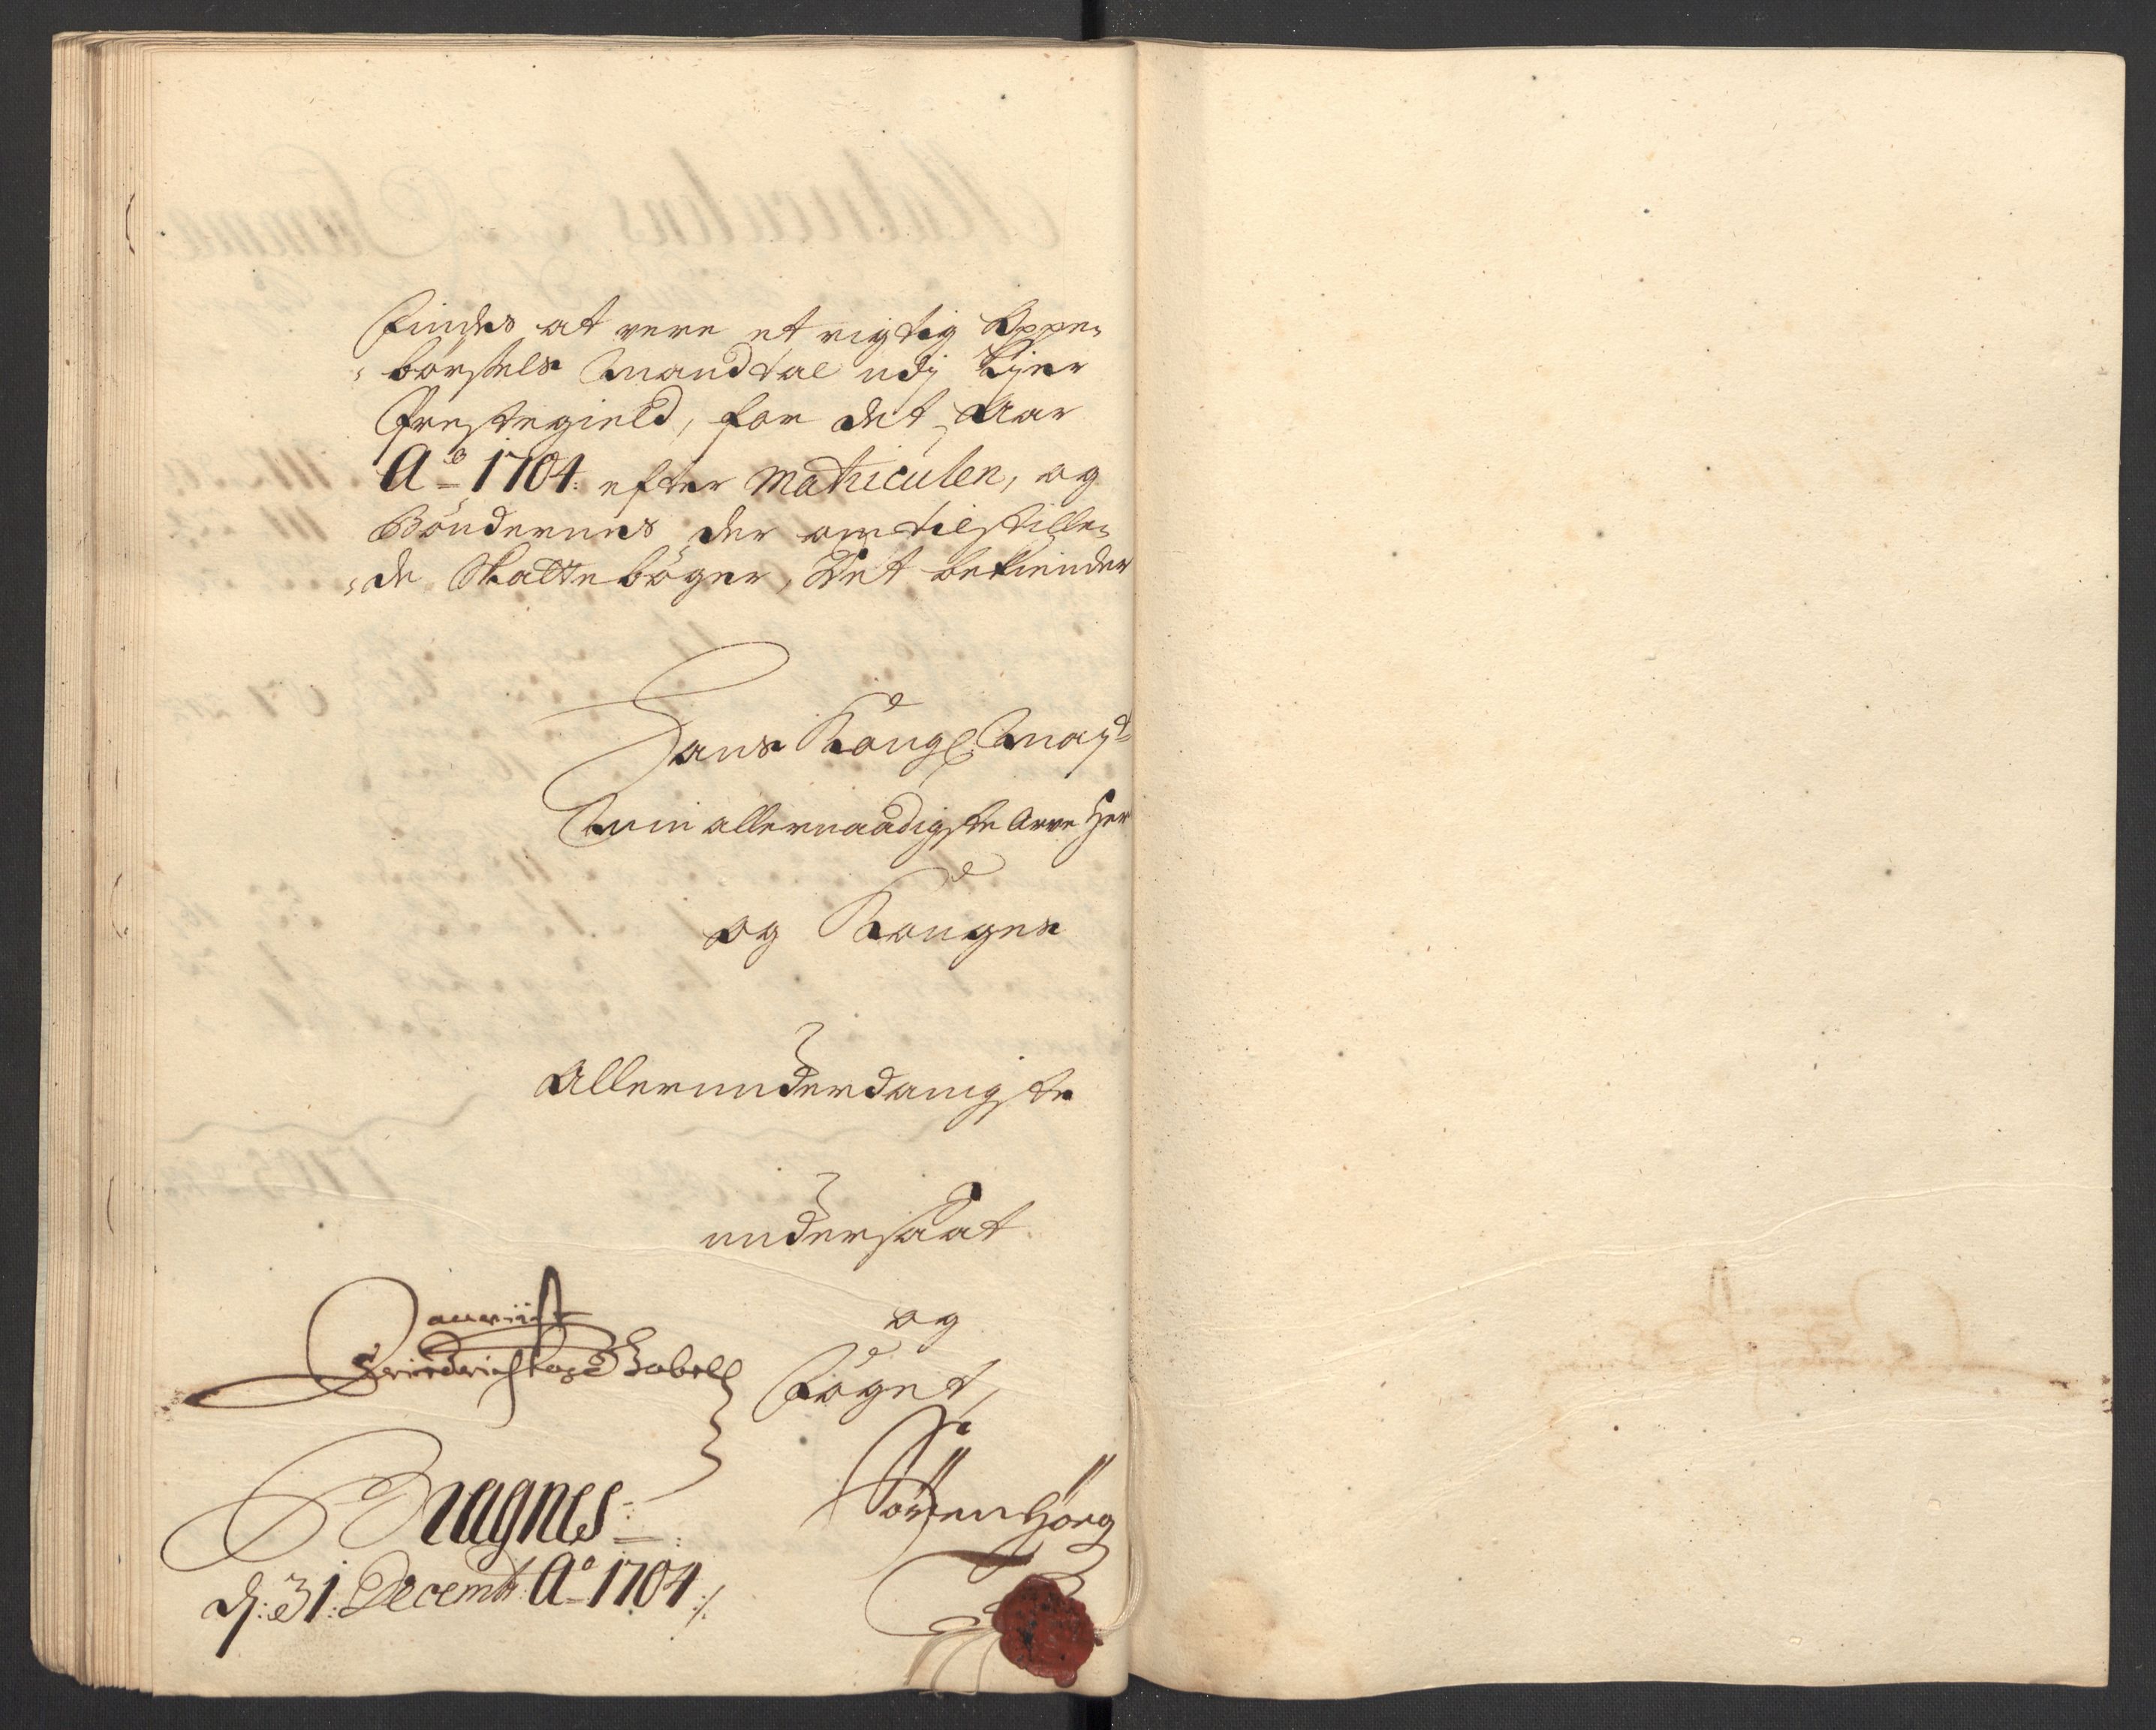 Findes at vere et rigtig Oppe-
-børsels Mandtal udj Lier
Prestegield, for det Aar
Ao 1704. efter Matriculen, og
Bøndernes der om tilstille-
-de Skattebøger, Det bekiender
Hans Kongl Mayts
Min allernaadigste Arve Herr
og Konges
Allerunderdanigste
undersaat
og
Foget,
Friederich Zobell
Söffren
Bragnes
d: 31: Decembr Ao 1704 ./.